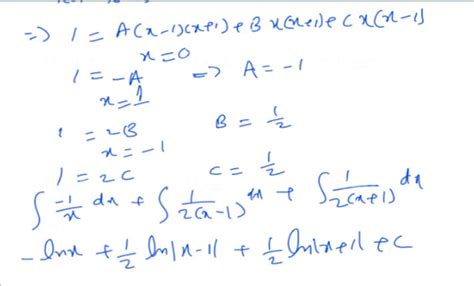 ⇒ 1 = A(x-1)(x+1) + B x(x+1) + C x(x-1)
x=0
1 = -A ⇒ A = -1
x=1
1 = 2B B = 1/2
x = -1
1 = 2C C = 1/2
∫ -1/x dx + ∫ 1/2(x-1) dx + ∫ 1/2(x+1) dx
-lnx + 1/2 ln|x-1| + 1/2 ln|x+1| + C